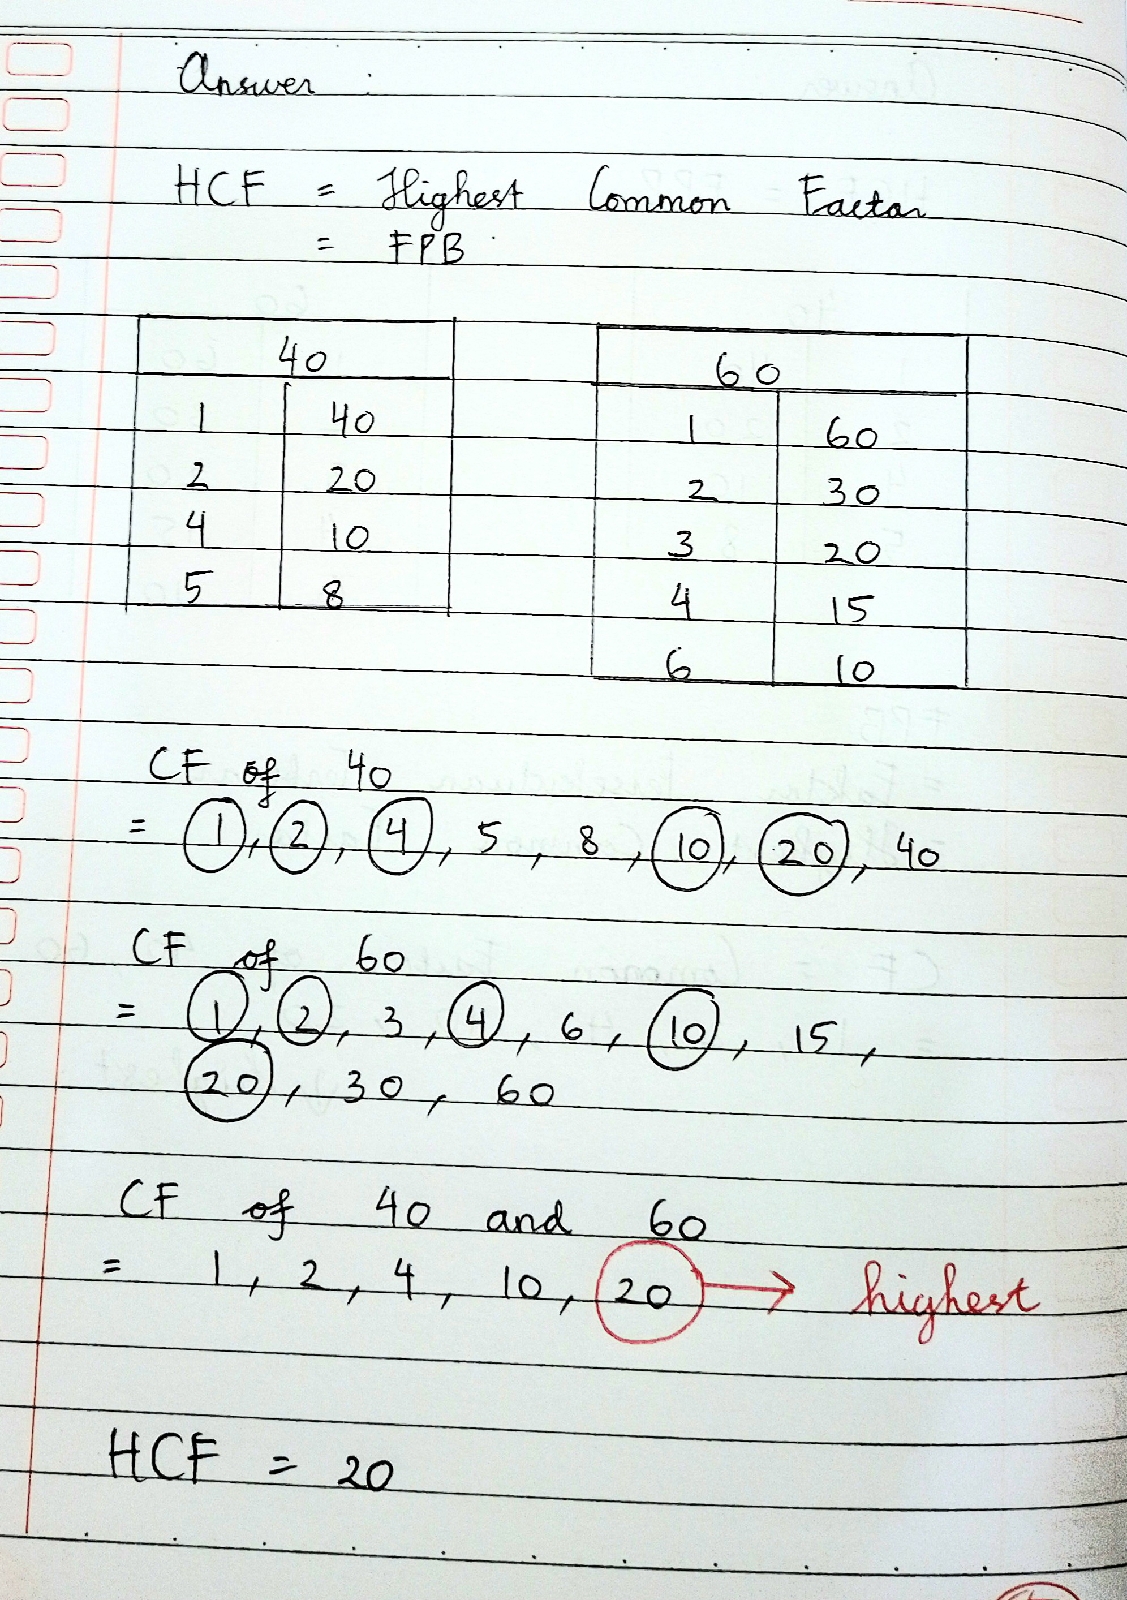 Answer :
HCF = Highest Common Factor
= FPB
40
1 40
2 20
4 10
5 8
60
1 60
2 30
3 20
4 15
6 10
CF of 40
= 1, 2, 4, 5, 8, 10, 20, 40
CF of 60
= 1, 2, 3, 4, 6, 10, 15,
20, 30, 60
CF of 40 and 60
= 1, 2, 4, 10, 20 → highest
HCF = 20